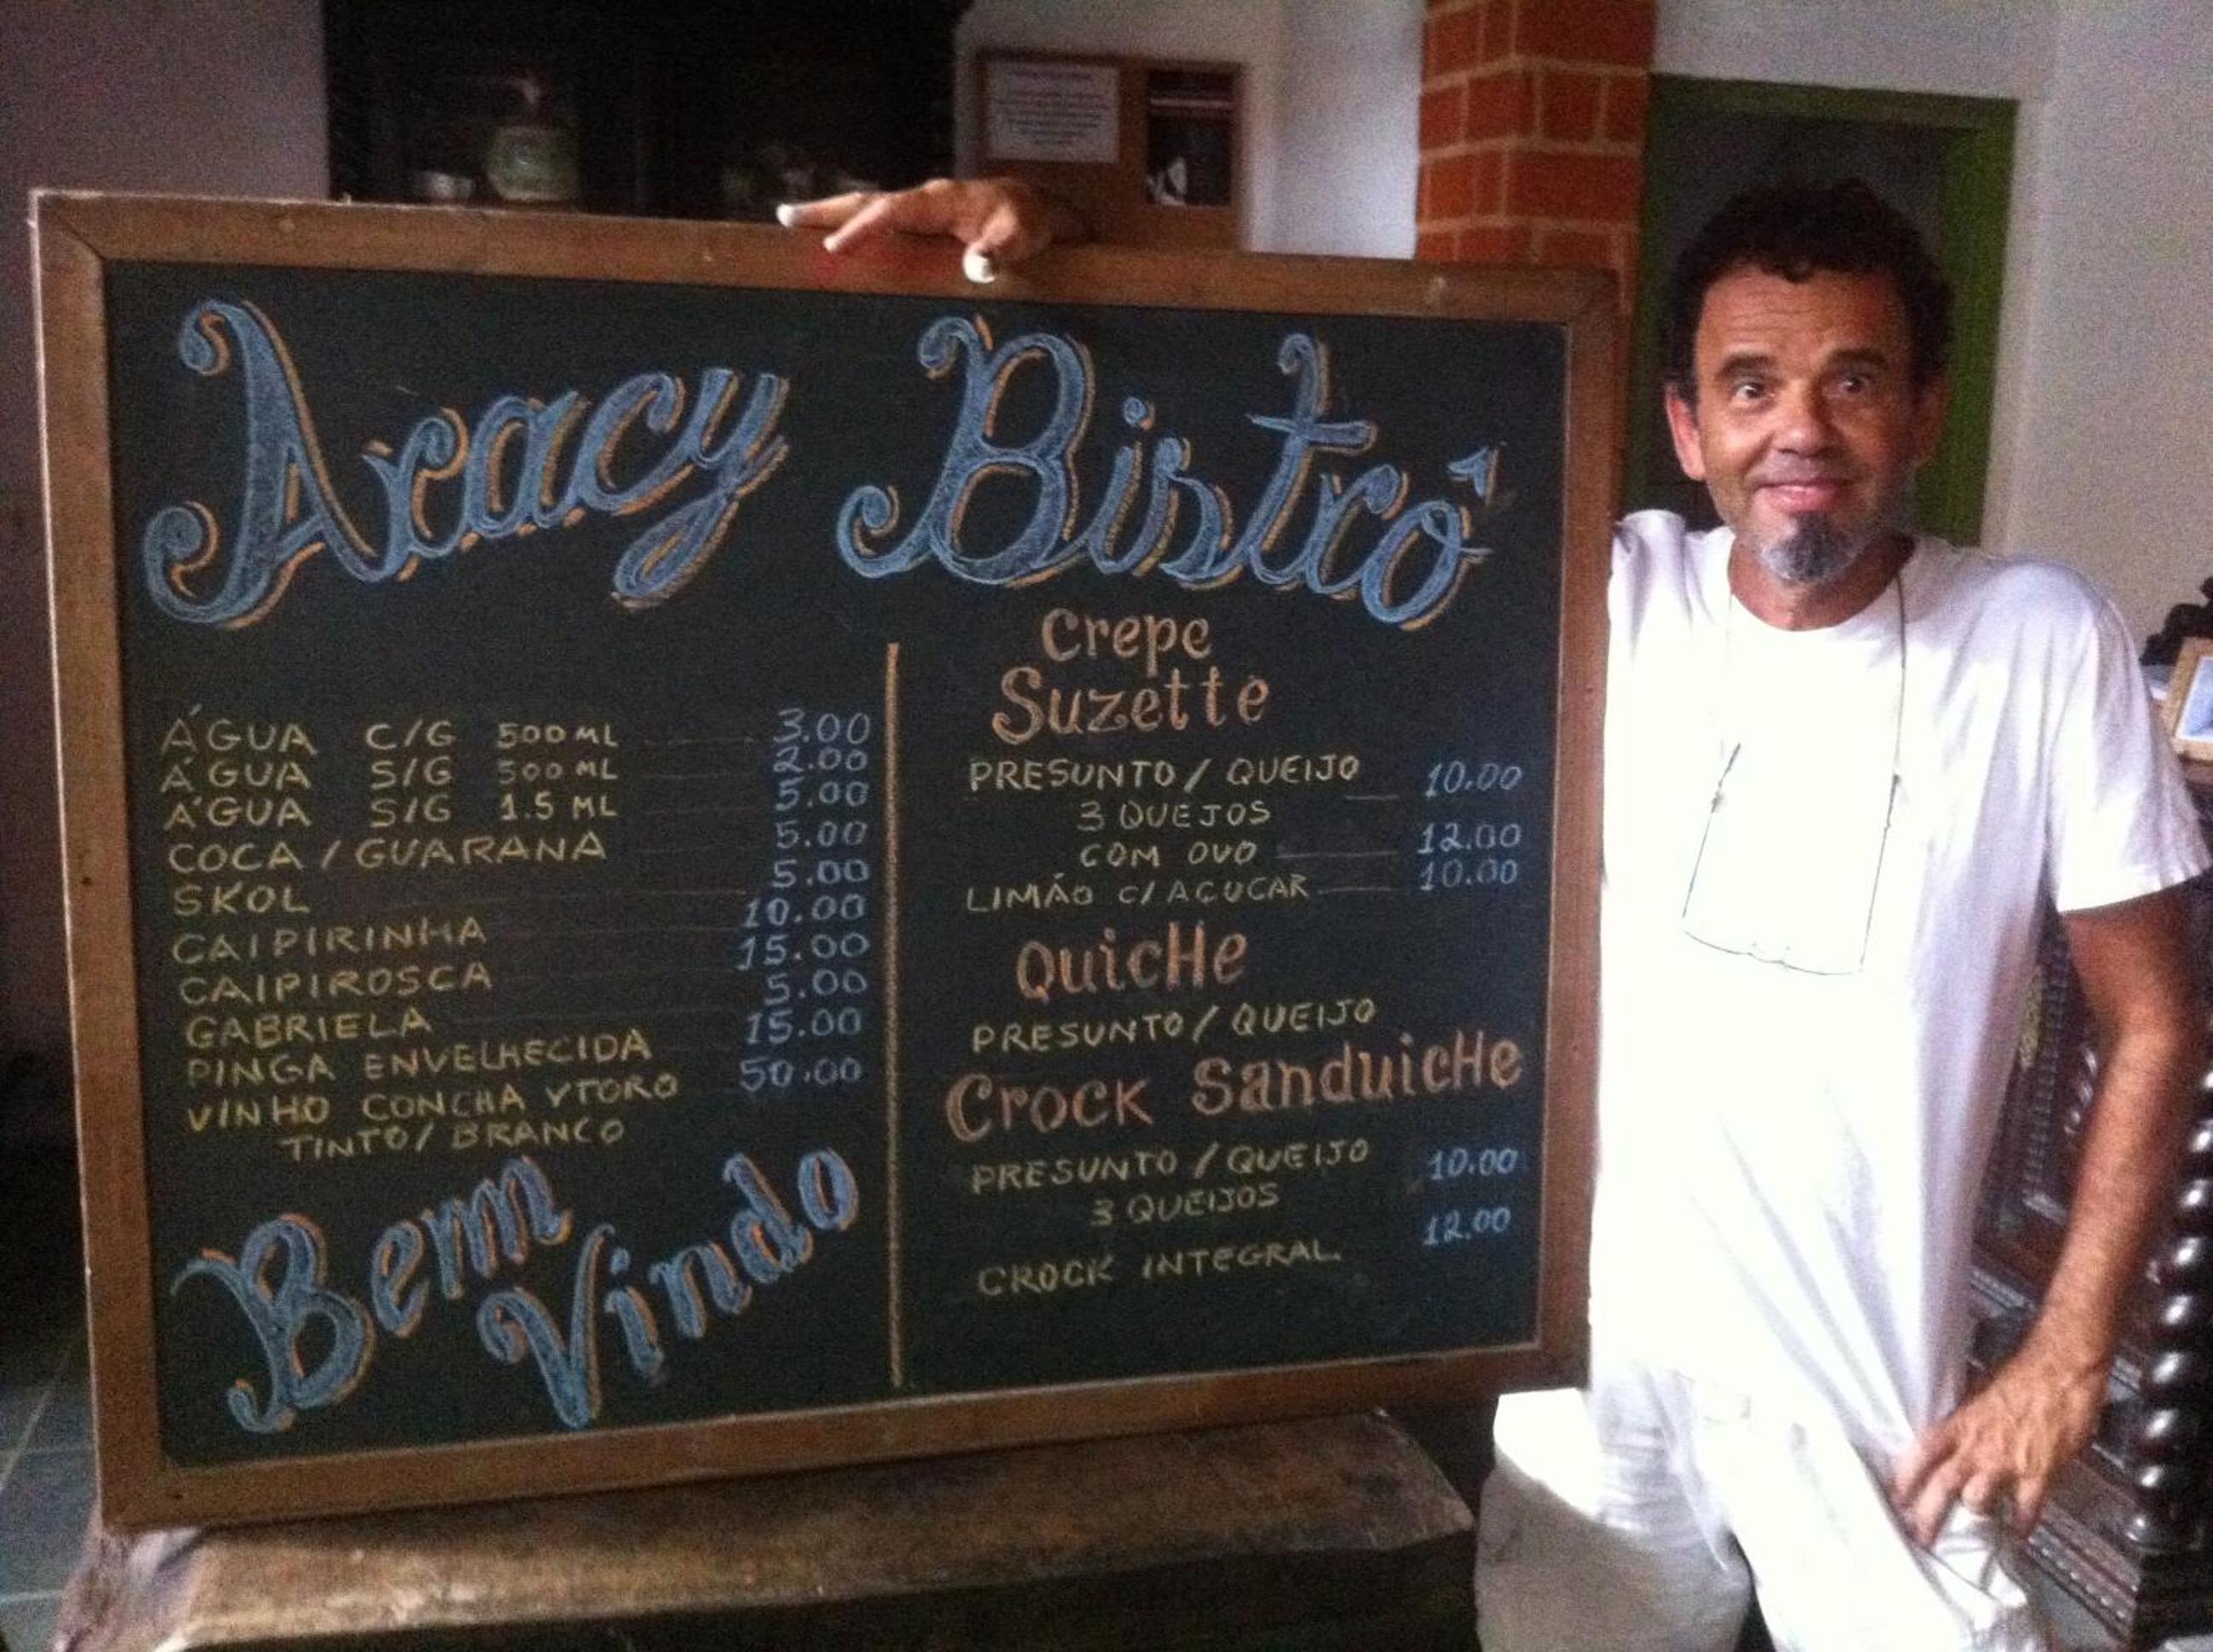 Aracy Bistrô
ÁGUA C/G 500 ML 3.00
ÁGUA S/G 500 ML 2.00
ÁGUA S/G 1.5 ML 5.00
COCA / GUARANA 5.00
SKOL 5.00
CAIPIRINHA 10.00
CAIPIROSCA 15.00
GABRIELA 5.00
PINGA ENVELHECIDA 15.00
VINHO CONCHA YTORO 50,00
TINTO/BRANCO
Bem
Vindo
Crepe
Suzette
PRESUNTO / QUEIJO 10.00
3 QUEJOS
COM OVO 12.00
LIMÃO C/ AÇUCAR 10.00
QuicHe
PRESUNTO/ QUEIJO
Crock SanduicHe
PRESUNTO / QUEIJO 10.00
3 QUEIJOS
12.00
CROCK INTEGRAL